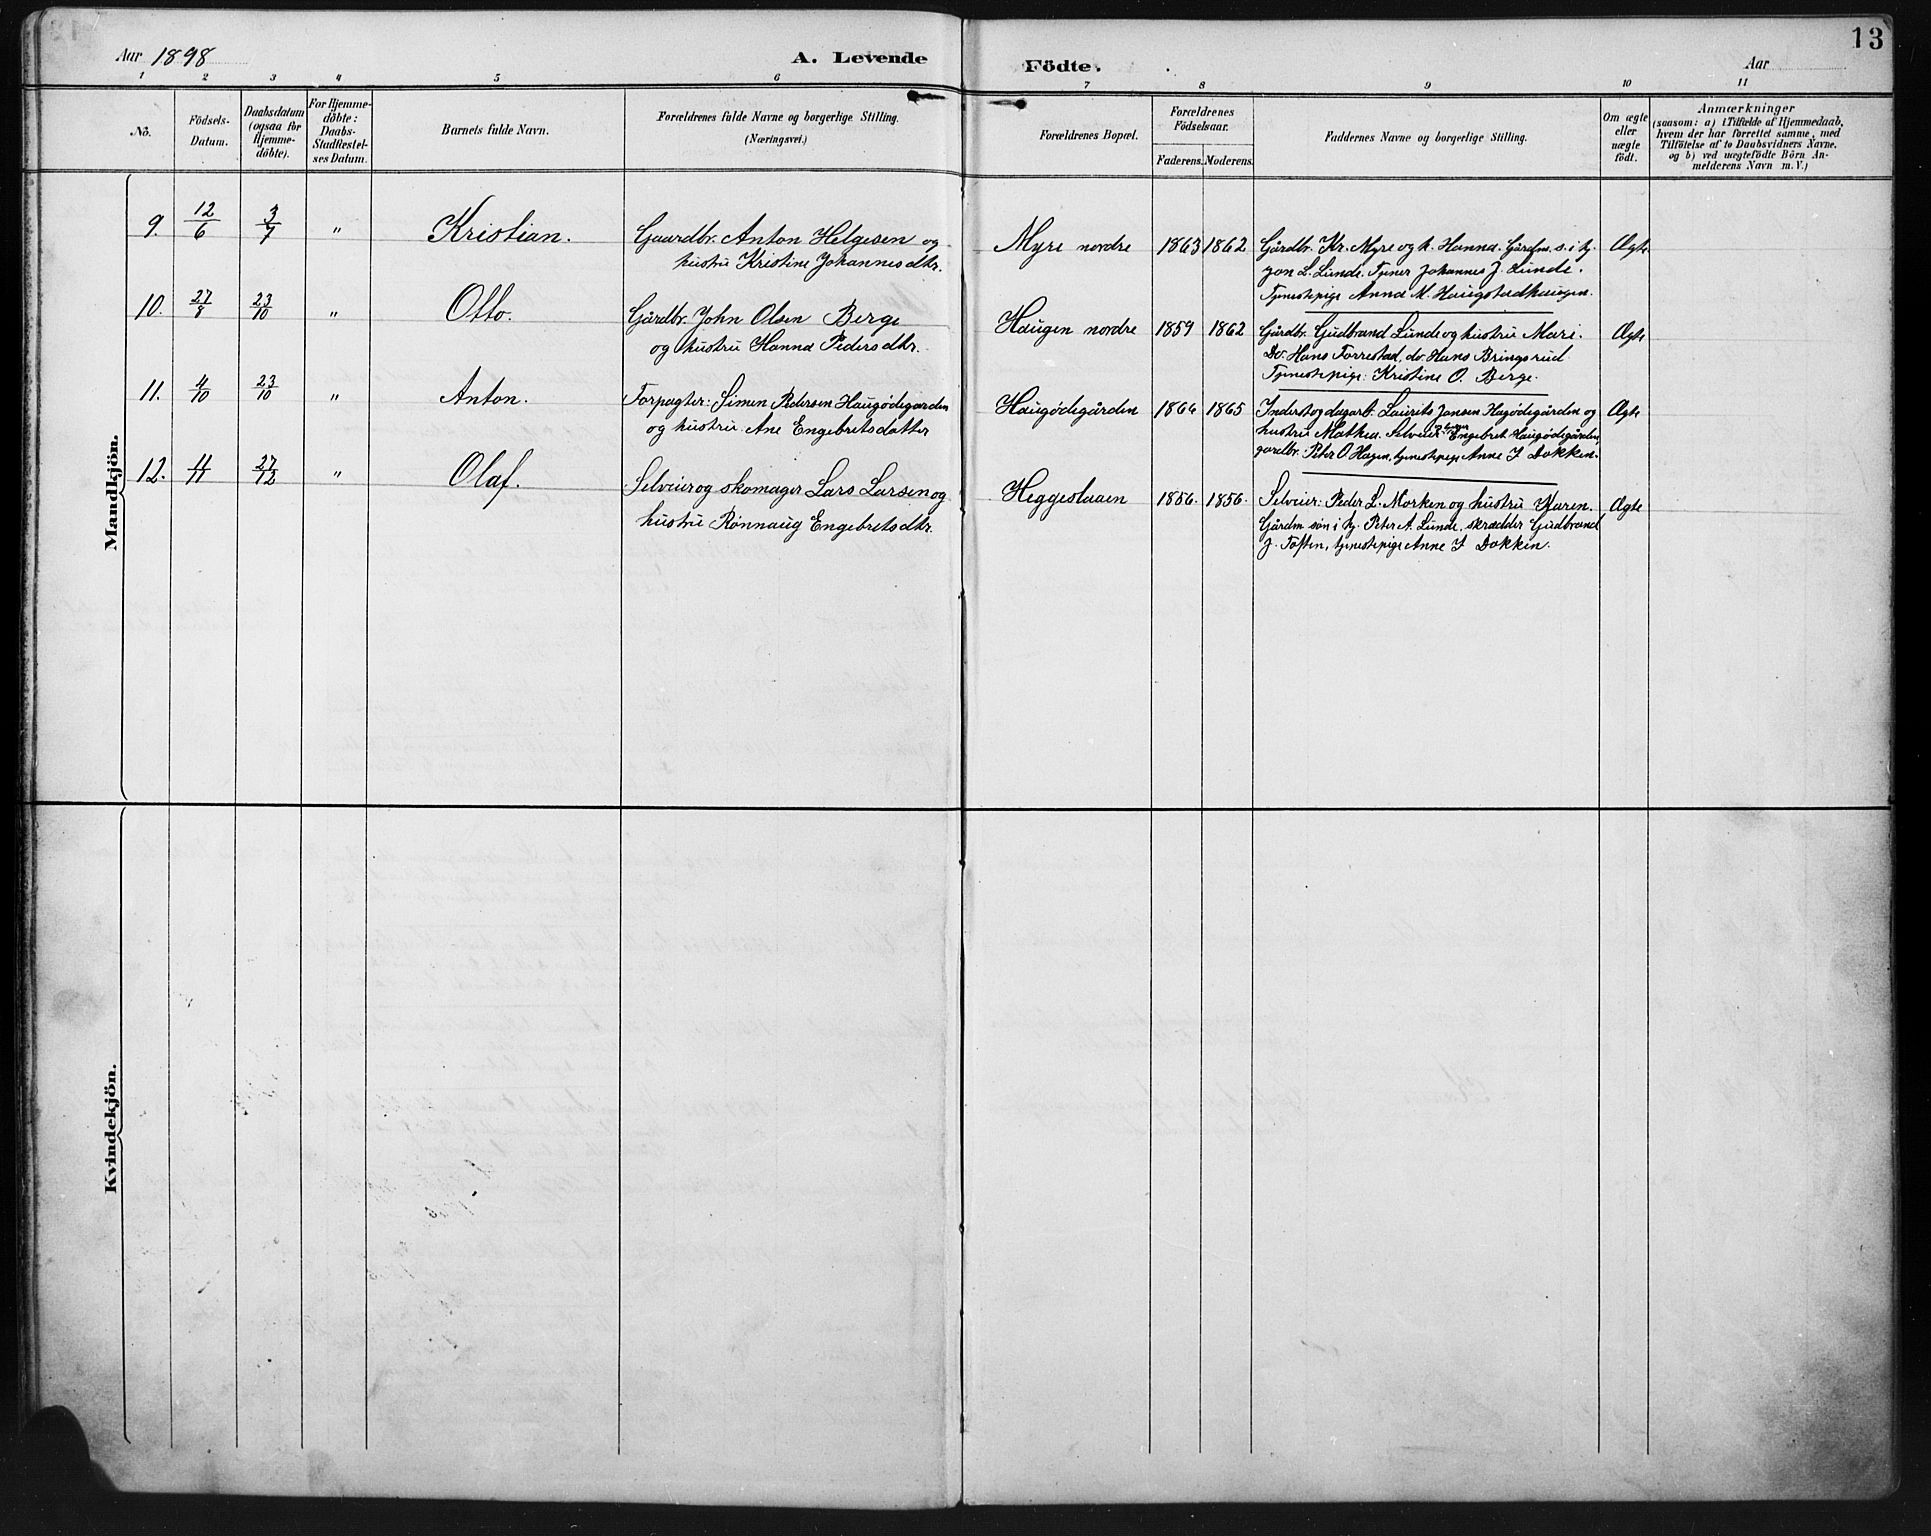 13
Aar 1898
A. Levende
Födte.
Aar
1 2 3 4 5 6 7 8 9 10 11
No.
Födsels-
Datum.
Daabsdatum
(ogsaa for
Hjemme-
döbte).
For Hjemme-
döbte:
Daabs-
Stadfæstel-
ses Datum.
Barnets fulde Navn.
Forældrenes fulde Navne og borgerlige Stilling.
(Næringsvei.)
Forældrenes Bopæl.
Forældrenes
Födselsaar.
Faderens. Moderens.
Faddernes Navne og borgerlige Stilling.
Om ægte
eller
uægte
födt.
Anmærkninger
(saasom: a) i Tilfælde af Hjemmedaab,
hvem der har forrettet samme, med
Tilföielse af to Daabsvidners Navne,
og b) ved uægtefödte Börn An-
melderens Navn m. V.)
Mandkjön.
9. 12/6 3/7 " Kristian.
Gaardbr. Anton Helgesen og
hustru Kristine Johannesdtr.
Myre nordre 1863 1862
Gårdbr. Kr. Myre og h. Hanna. Gårdm. s. i tj.
Lunde. Tjener Johannes J. Lunde.
Tjenestepige Anna M. Haugstadhaugen.
Ægte
10. 27/8 23/10 " Otto.
Gårdbr. John Olsen Berge
og hustru Hanna Pedersdtr.
Haugen nordre 1859 1862
Gårdbr. Gudbrand Lunde og hustru Mari.
Do. Hans Forrestad, do. Hans Bringsrud
Tjenestepige: Kristine O. Berge.
Ægte
11. 4/10 23/10 " Anton.
Forpagter: Simen Pedersen Haugödegarden
og hustru Ane Engebretsdatter
Haugödegården 1864 1865
Inderst og dagarb. Laurits Jansen Hagödegården og
hustru Mathea. Selveier Engebret Haugödegården,
gardbr. Peter O Hagen, tjenestepige Anne I Dokken.
Ægte
12. 11/11 27/12 " Olaf.
Selveier og skomager Lars Larsen og
hustru Rønnaug Engebretsdtr.
Heggeslaaen 1856. 1856.
Selveier: Peder L. Morken og hustru Karen.
Gårdm. søn i tj. Peter A. Lunde, skrædder Gudbrand
J. Toften, tjenestepige Anne I Dokken.
Ægte
Kvindekjön.